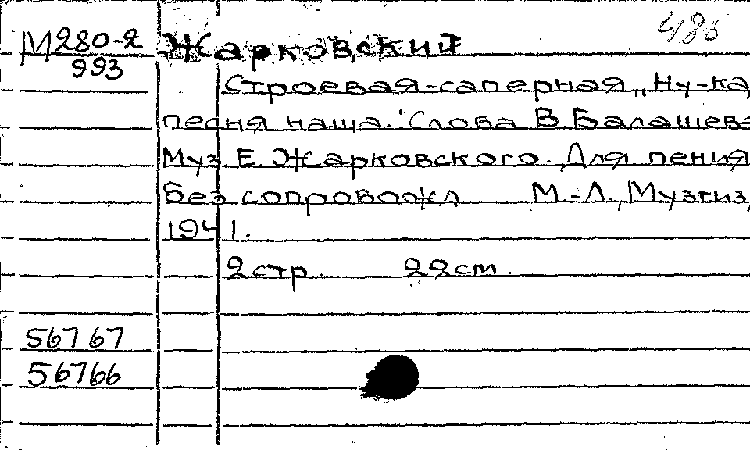 485
М280-2 Жарковский
993
Строевая-саперная „Ну-ка,
песня наша." Слова В. Балашева
Муз Е. Жарковского. Для пения
без сопровожд М.-Л., Музгиз,
1941.
2 стр. 22 cm.
56767
56766